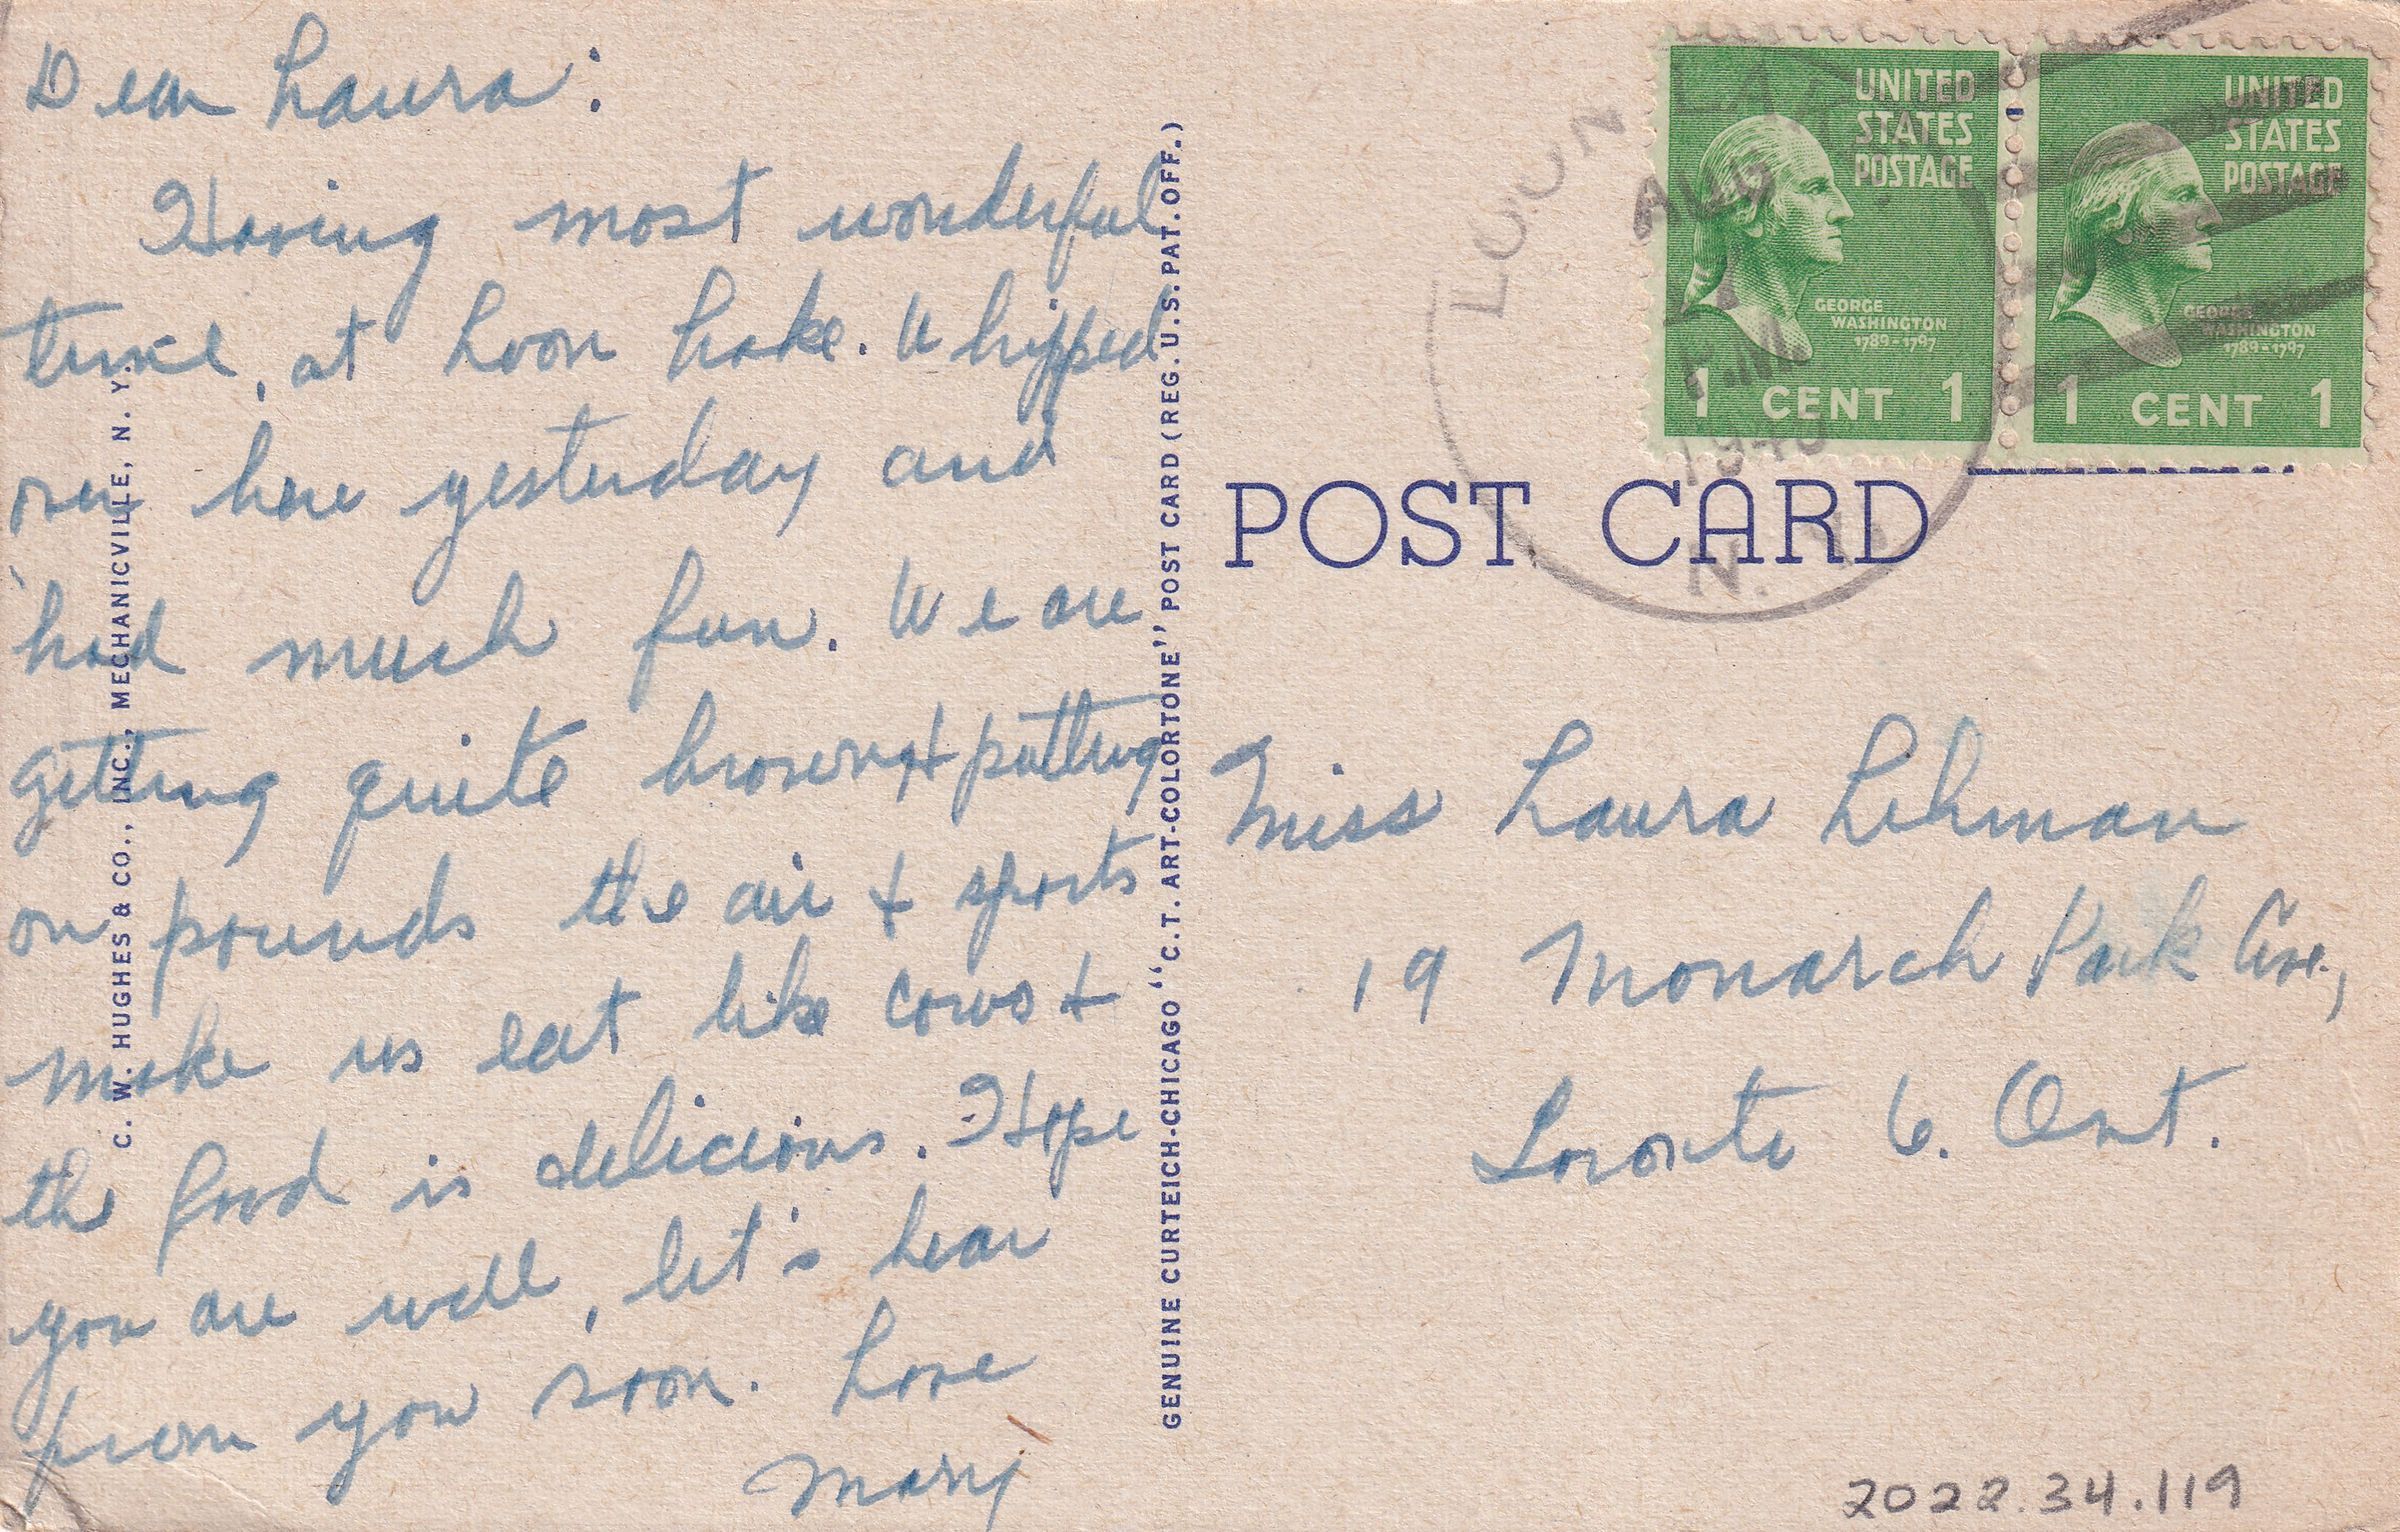 Dear Laura:
Having most wonderful
time, at Loon Lake. Whipped
over here yesterday and
had much fun. We are
getting quite brown & putting
on pounds the air & sports
make us eat like cows &
the food is delicious. Hope
you are well, let's hear
from you soon. Love
Mary
C. W. HUGHES & CO., INC., MECHANICVILLE, N. Y.
GENUINE CURTEICH-CHICAGO "C.T. ART-COLORTONE" POST CARD (REG. U.S. PAT. OFF.)
LOON LAKE
AUG
P.M.
N. Y.
UNITED
STATES
POSTAGE
GEORGE
WASHINGTON
1789-1797
1 CENT 1
UNITED
STATES
POSTAGE
GEORGE
WASHINGTON
1789-1797
1 CENT 1
POST CARD
Miss Laura Lehman
19 Monarch Park Ave.,
Toronto 6. Ont.
2022.34.119